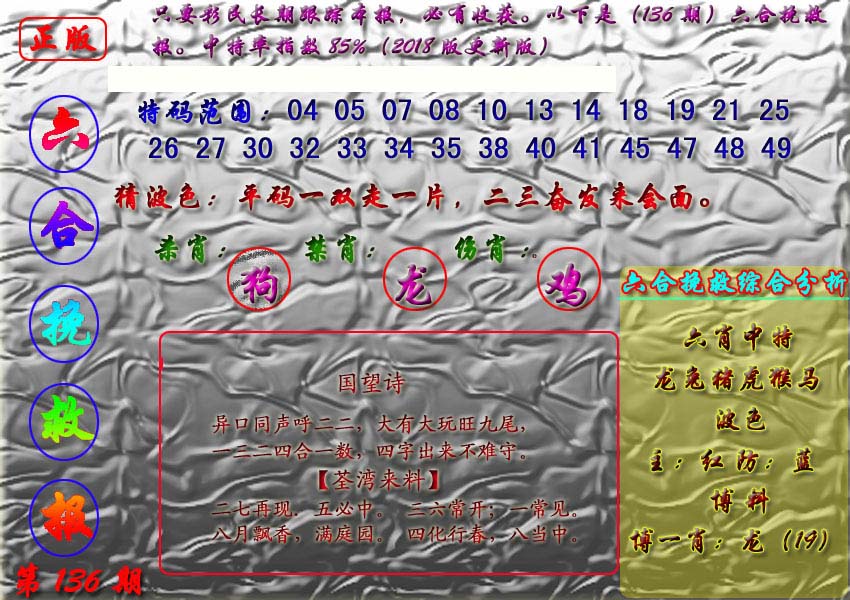 正版
只要彩民长期跟踪本报，必有收获。以下是（136期）六合挽救
报。中特率指数85%（2018版更新版）
六
合
挽
救
报
第136期
特码范围：04 05 07 08 10 13 14 18 19 21 25
26 27 30 32 33 34 35 38 40 41 45 47 48 49
猜波色：单码一双走一片，二三奋发来会面。
杀肖： 禁肖： 伤肖：。
狗 龙 鸡
国望诗
异口同声呼二二，大有大玩旺九尾，
一三二四合一数，四字出来不难守。
【荃湾来料】
二七再现．五必中。 三六常开；一常见。
八月飘香，满庭园。 四化行春，八当中。
六合挽救综合分析
六肖中特
龙兔猪虎猴马
波色
主：红防：蓝
博料
博一肖：龙（19）